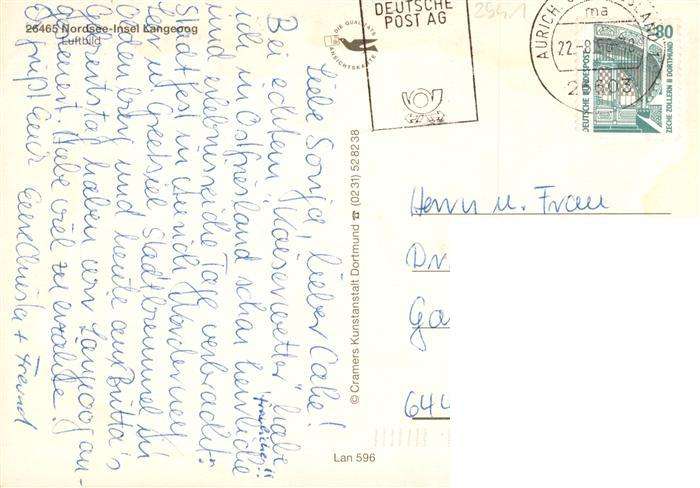 26465 Nordsee-Insel Langeoog
Luftbild
DIE QUALITÄTS
ANSICHTSKARTE
DEUTSCHE
POST AG
2941
AURICH
ma
22.-8.
2 603
80
DEUTSCHE BUNDESPOST
ZECHE ZOLLERN II DORTMUND
Liebe Sonja, lieber Calle!
Bei echtem "Kaiserwetter" habe
ich in Ostfriesland schon herrliche
fröhliche
und erlebnisreiche Tage verbracht.
Stadtfest in Aurich, Norderney
Greetsiel, Stadtbummel in
und heute an Britta's
Geburtstag haben wir Langeoog an-
gesteuert. Habe viel zu erzählen!
Es grüßt Euch Eure Christa + Freund
© Cramers Kunstanstalt Dortmund ☎ (0231) 528238
Lan 596
Herrn u. Frau
Dr.
Ga
644